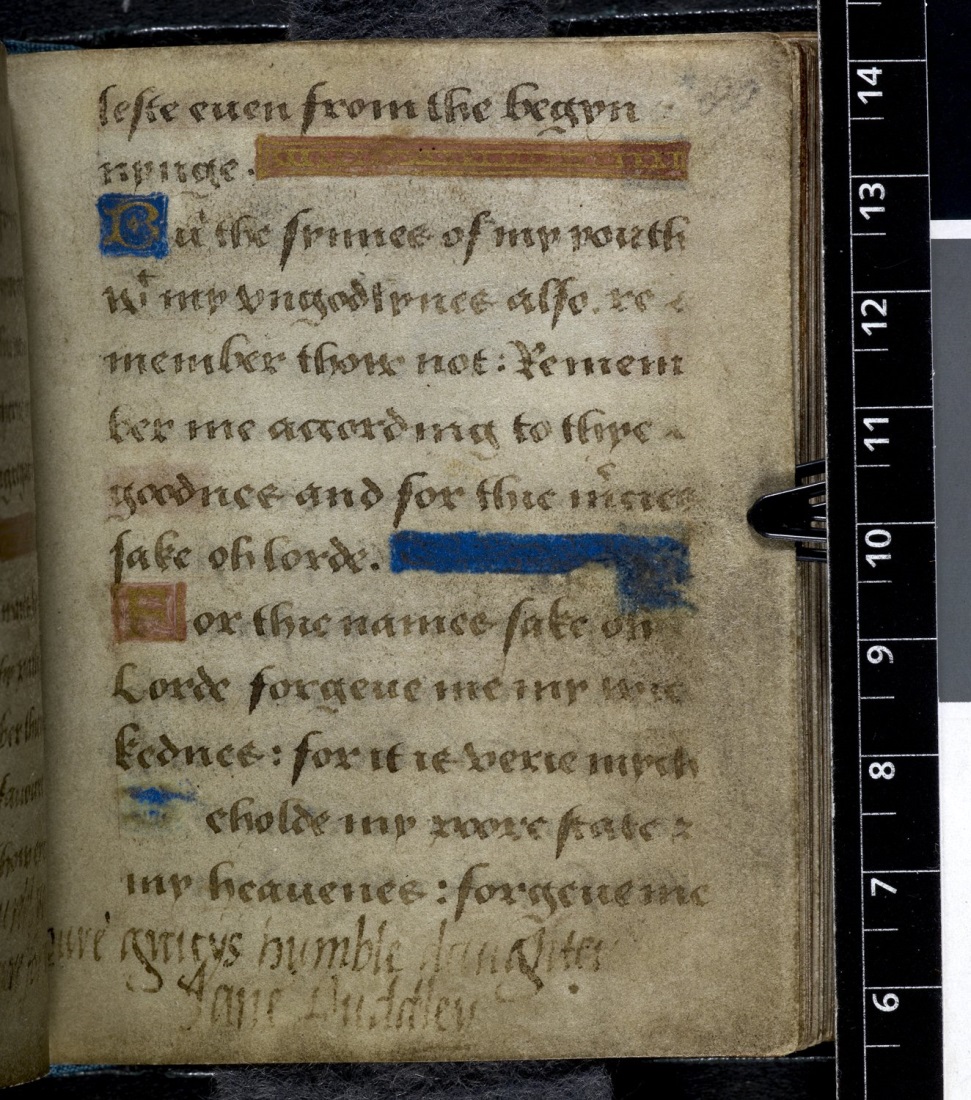 leste euen from the begyn
nynge.
But the synnes of my youth
wt my vngodlynes also. re
member thow not: Remem
ber me accordinig to thye
goodnes and for thie mrcies
sake oh lorde.
For thie names sake oh
Lorde forgeue me my wic
kednes: for it is verie mych
eholde my poore state &
my heauenes: forgeue me
youre gracys humble daughter
Jane Duddley
14
13
12
11
10
9
8
7
6